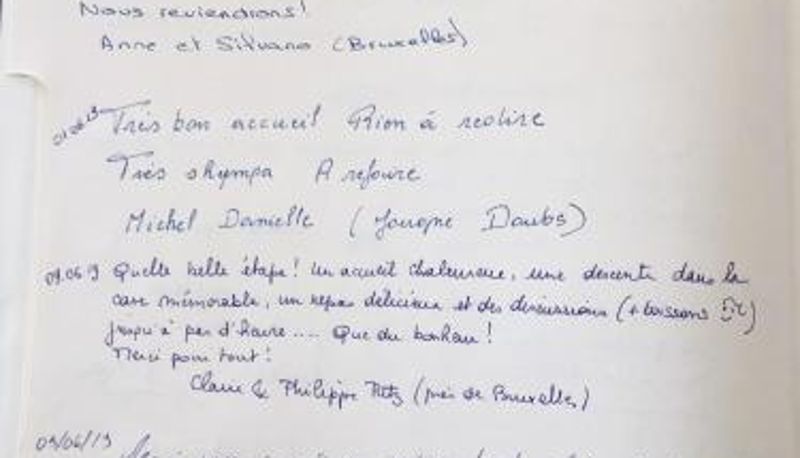 Nous reviendrons!
Anne et Silvano (Bruxelles)
Très bon accueil Rion à redire
Très shympa A refaire
Michel Danielle (Jougne Doubs)
09.06.19 Quelle belle étape! Un accueil chaleureux, une descente dans la
cave mémorable, un repas délicieux et des discussions (+ boissons
jusqu'à pas d'heure.... Que du bonheur!
Merci pour tout!
Claire & Philippe (près de Bruxelles)
09/06/19